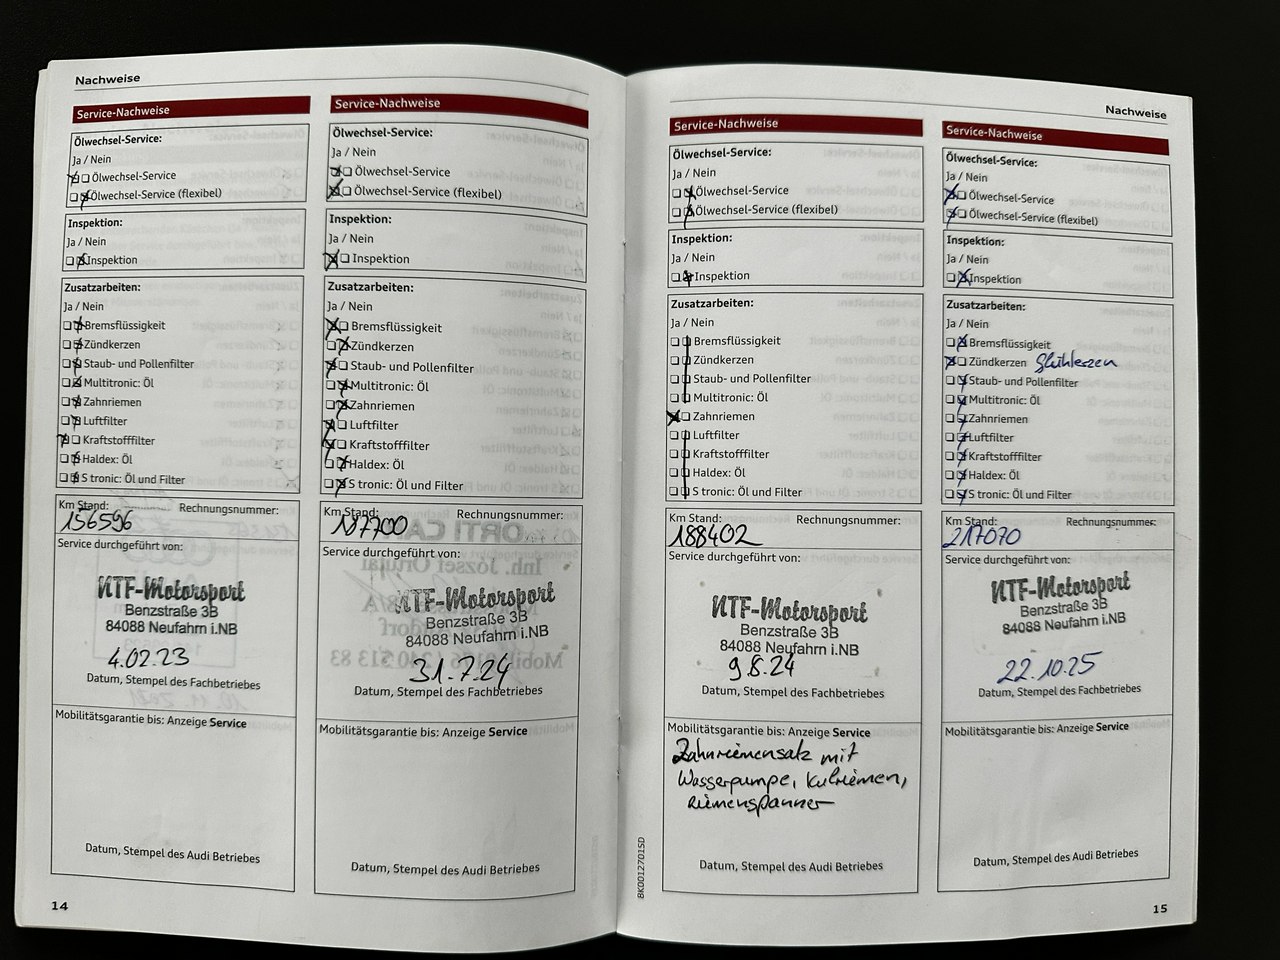 Nachweise
Service-Nachweise
Ölwechsel-Service:
Ja / Nein
Ölwechsel-Service
Ölwechsel-Service (flexibel)
Inspektion:
Ja / Nein
Inspektion
Zusatzarbeiten:
Ja / Nein
Bremsflüssigkeit
Zündkerzen
Staub- und Pollenfilter
Multitronic: Öl
Zahnriemen
Luftfilter
Kraftstofffilter
Haldex: Öl
S tronic: Öl und Filter
Km Stand: Rechnungsnummer:
156596
Service durchgeführt von:
NTF-Motorsport
Benzstraße 3B
84088 Neufahrn i.NB
4.02.23
Datum, Stempel des Fachbetriebes
Mobilitätsgarantie bis: Anzeige Service
Datum, Stempel des Audi Betriebes
14
Service-Nachweise
Ölwechsel-Service:
Ja / Nein
Ölwechsel-Service
Ölwechsel-Service (flexibel)
Inspektion:
Ja / Nein
Inspektion
Zusatzarbeiten:
Ja / Nein
Bremsflüssigkeit
Zündkerzen
Staub- und Pollenfilter
Multitronic: Öl
Zahnriemen
Luftfilter
Kraftstofffilter
Haldex: Öl
S tronic: Öl und Filter
Km Stand: Rechnungsnummer:
187700
Service durchgeführt von:
NTF-Motorsport
Benzstraße 3B
84088 Neufahrn i.NB
31.7.24
Datum, Stempel des Fachbetriebes
Mobilitätsgarantie bis: Anzeige Service
Datum, Stempel des Audi Betriebes
Nachweise
Service-Nachweise
Ölwechsel-Service:
Ja / Nein
Ölwechsel-Service
Ölwechsel-Service (flexibel)
Inspektion:
Ja / Nein
Inspektion
Zusatzarbeiten:
Ja / Nein
Bremsflüssigkeit
Zündkerzen
Staub- und Pollenfilter
Multitronic: Öl
Zahnriemen
Luftfilter
Kraftstofffilter
Haldex: Öl
S tronic: Öl und Filter
Km Stand: Rechnungsnummer:
188402
Service durchgeführt von:
NTF-Motorsport
Benzstraße 3B
84088 Neufahrn i.NB
9.8.24
Datum, Stempel des Fachbetriebes
Mobilitätsgarantie bis: Anzeige Service
Zahnriemensatz mit
Wasserpumpe, Keilriemen,
Riemenspanner
Datum, Stempel des Audi Betriebes
BK0012701SD
Service-Nachweise
Ölwechsel-Service:
Ja / Nein
Ölwechsel-Service
Ölwechsel-Service (flexibel)
Inspektion:
Ja / Nein
Inspektion
Zusatzarbeiten:
Ja / Nein
Bremsflüssigkeit
Zündkerzen Glühkerzen
Staub- und Pollenfilter
Multitronic: Öl
Zahnriemen
Luftfilter
Kraftstofffilter
Haldex: Öl
S tronic: Öl und Filter
Km Stand: Rechnungsnummer:
217070
Service durchgeführt von:
NTF-Motorsport
Benzstraße 3B
84088 Neufahrn i.NB
22.10.25
Datum, Stempel des Fachbetriebes
Mobilitätsgarantie bis: Anzeige Service
Datum, Stempel des Audi Betriebes
15